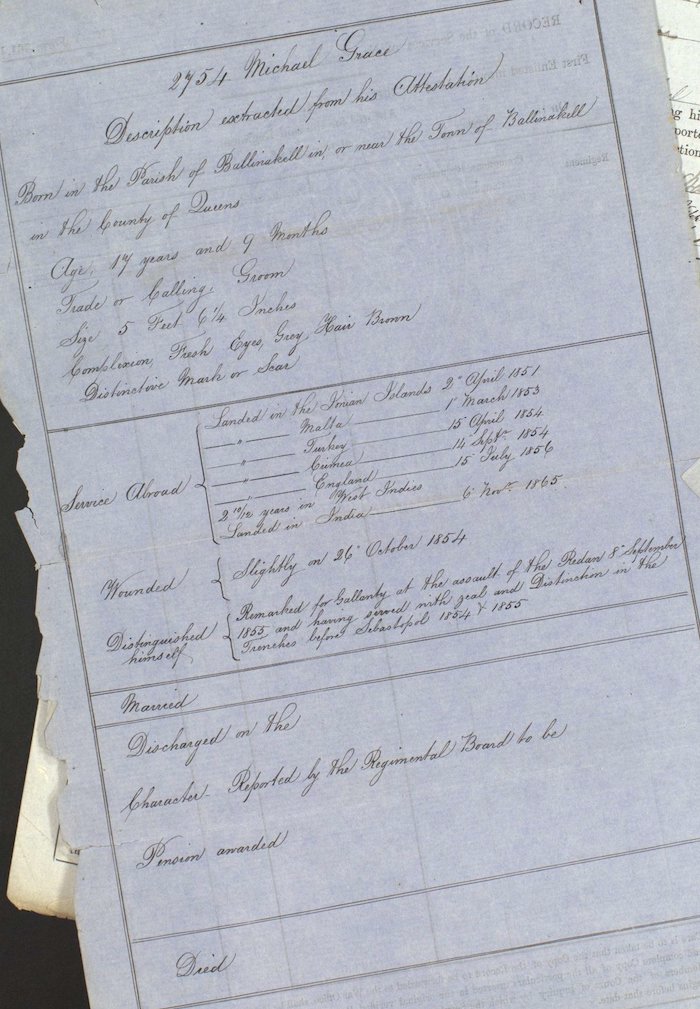 2754 Michael Grace
Description extracted from his Attestation
Born in the Parish of Ballinakell in, or near the Town of Ballinakell
in the County of Queens
Age, 17 years and 9 Months
Trade or Calling, Groom
Size 5 Feet 6 1/4 Inches
Complexion, Fresh Eyes, Grey, Hair Brown
Distinctive Mark or Scar
Service Abroad
Landed in the Ionian Islands 2d April 1851
" Malta 1t March 1853
" Turkey 15 April 1854
" Crimea 14 Septr 1854
" England 15 July 1856
2 10/12 years in West Indies
Landed in India 6 Novr 1865
Wounded
Slightly on 26 October 1854
Distinguished himself
Remarked for Gallanty at the assault of the Redan 8 September
1855 and having served with zeal and Distinction in the
Trenches before Sebastopol 1854 & 1855
Married
Discharged on the
Character- Reported by the Regimental Board to be
Pension awarded
Died
RECORD of the Service
First Enlisted
Regiment
g hi
porte
ction